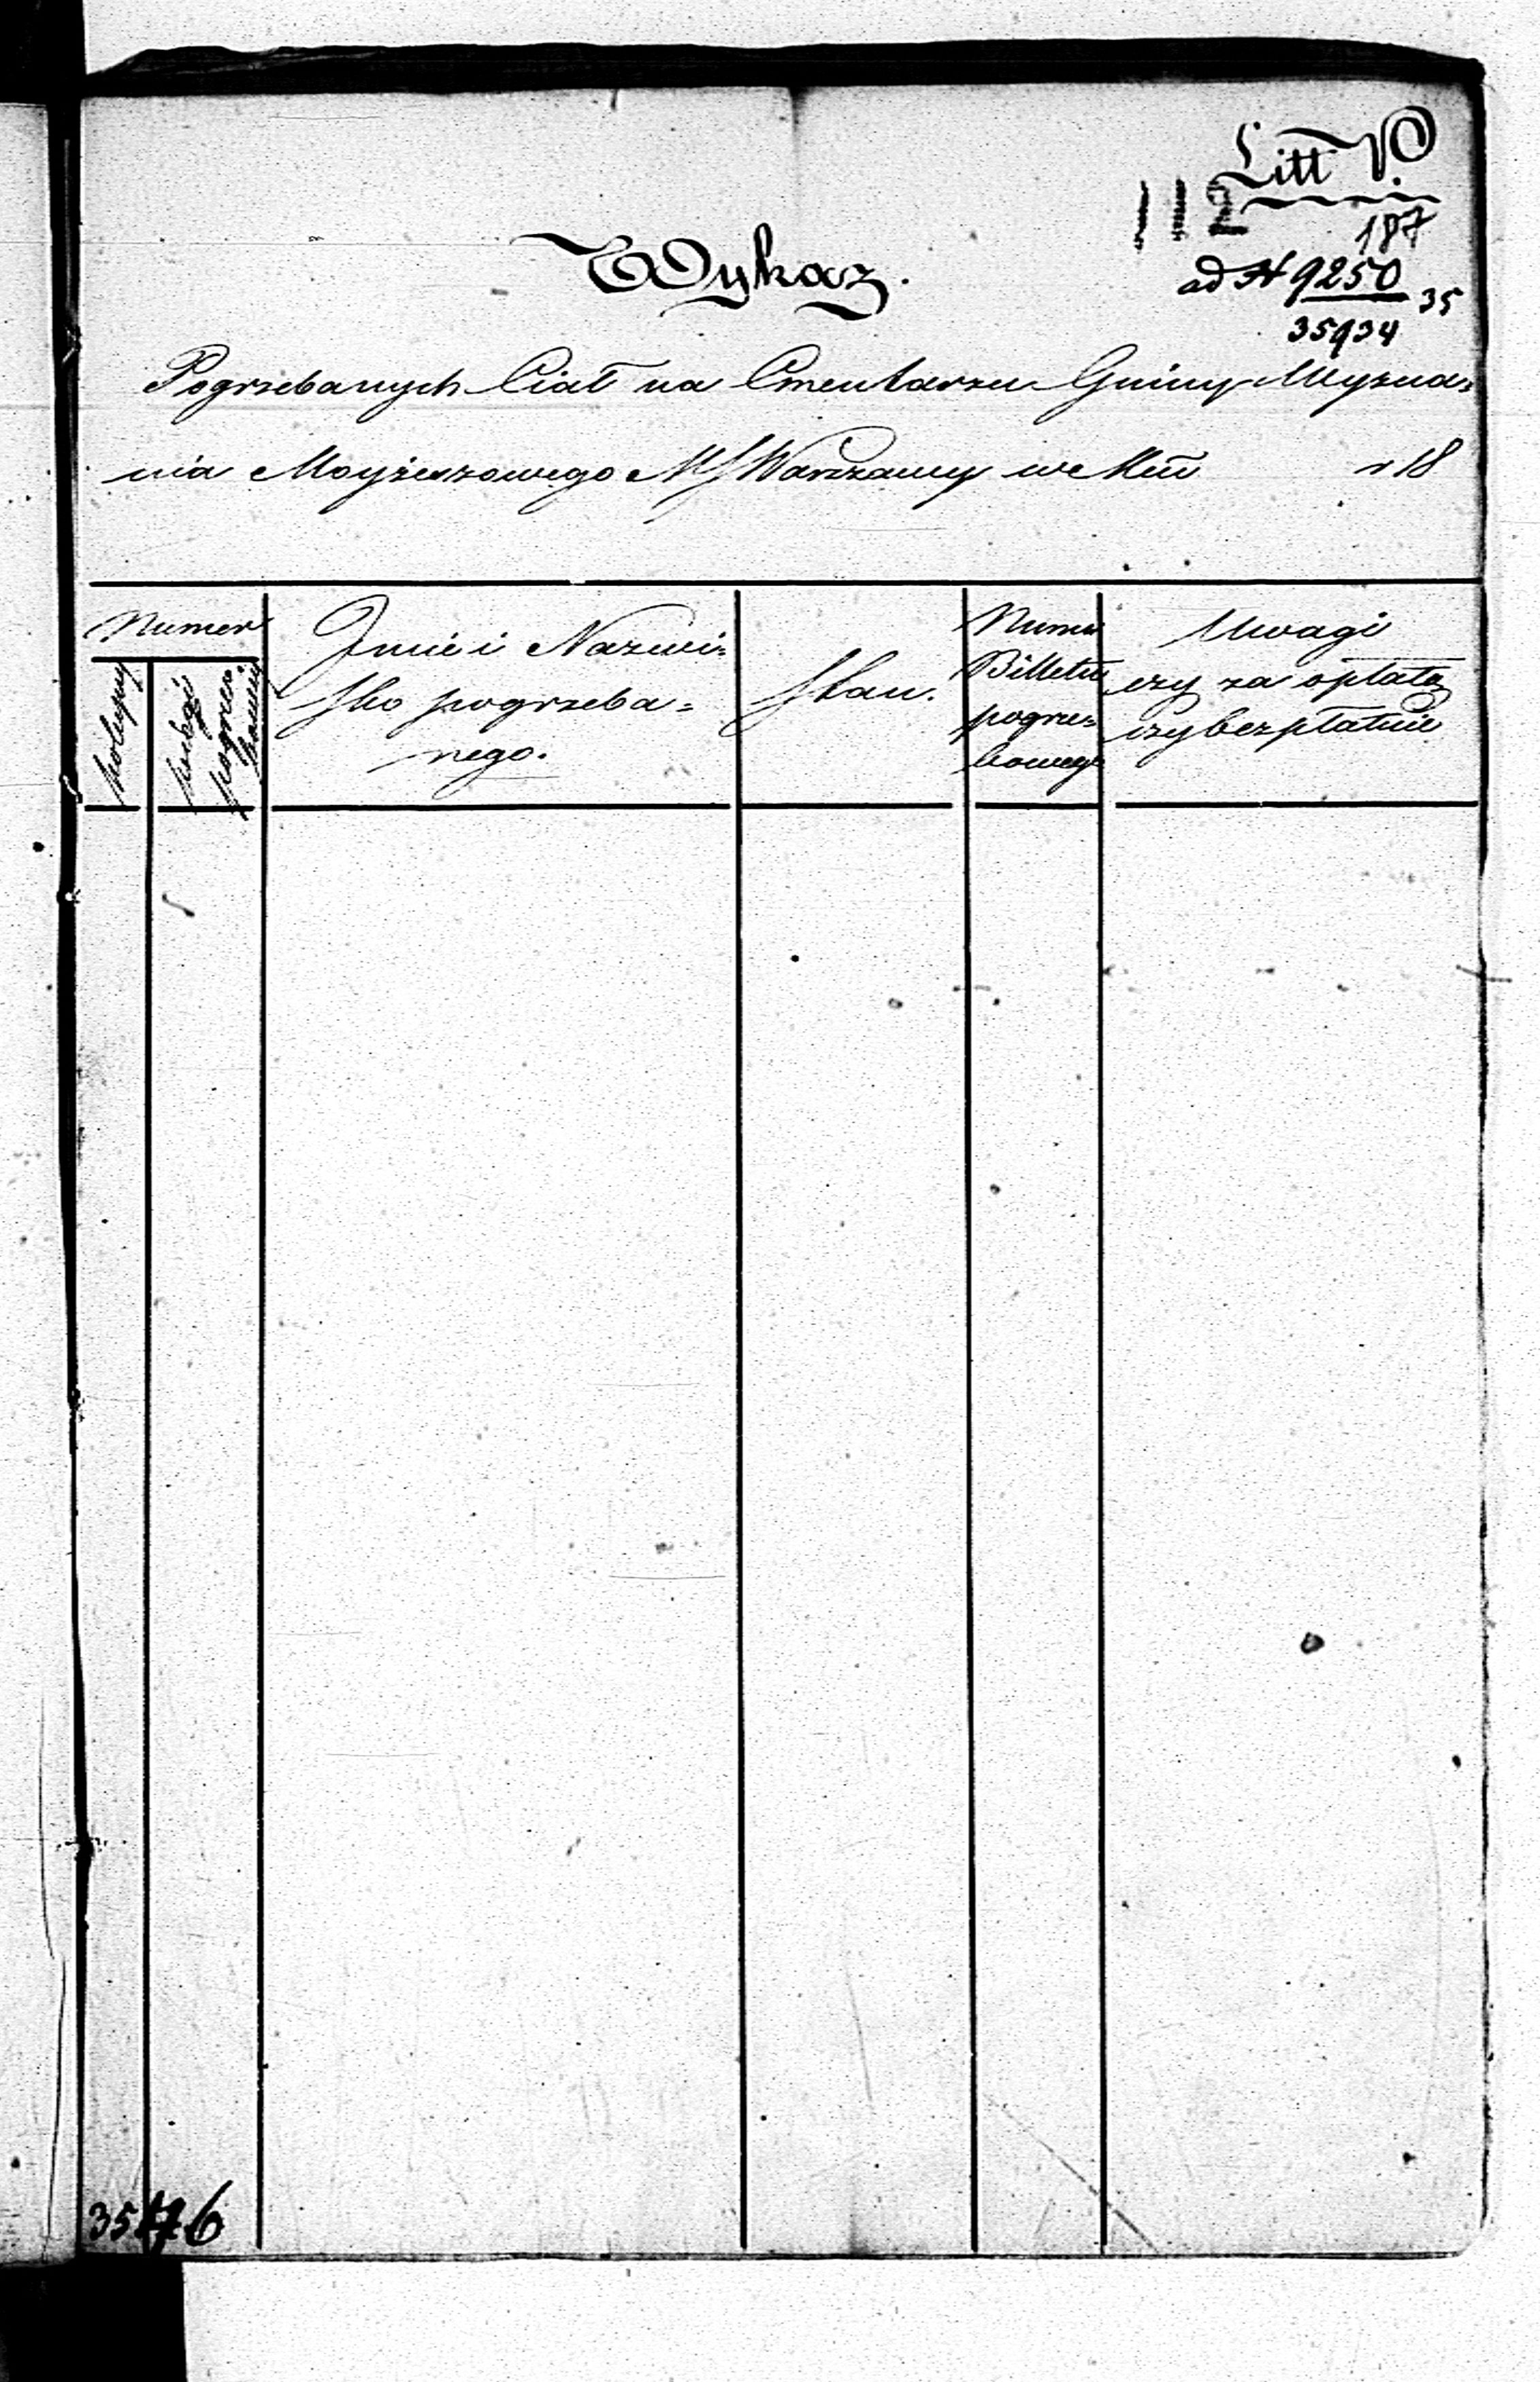 Litt V.
112
187
ad N 9250
35
35934
Wykaz.
Pogrzebanych Ciał na Cmentarzu Gminy Wyzna=
nia Moyżeszowego M S Warszawy w Mcu r 18
Numer
kolejny
księgi
pogrze=
bowej
Jmie i Nazwi=
sko pogrzeba=
nego.
Stan.
Numer
Billetu
pogrze=
bowego
Uwagi
czy za opłatą
czy bezpłatnie